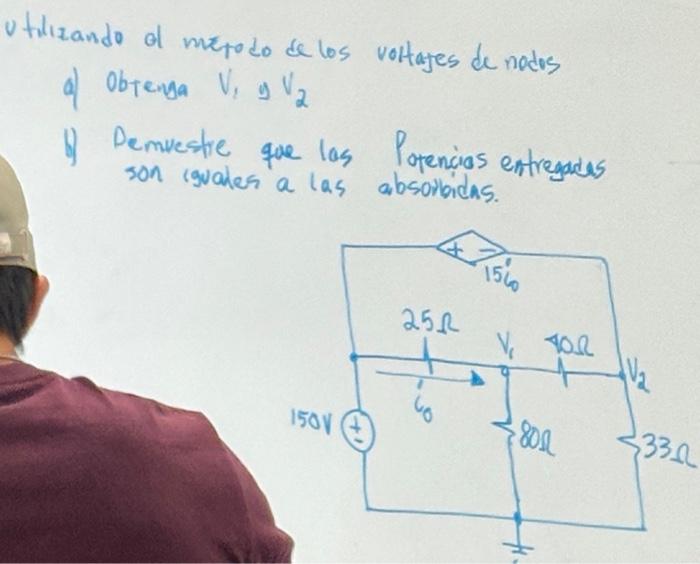 utilizando el metodo de los voltajes de nodos
a) Obtenga V₁ y V₂
b) Demuestre que las Potencias entregadas
son iguales a las absorbidas.
+ −
15i₀
25Ω
V₁
40Ω
V₂
i₀
150V
+
−
80Ω
33Ω